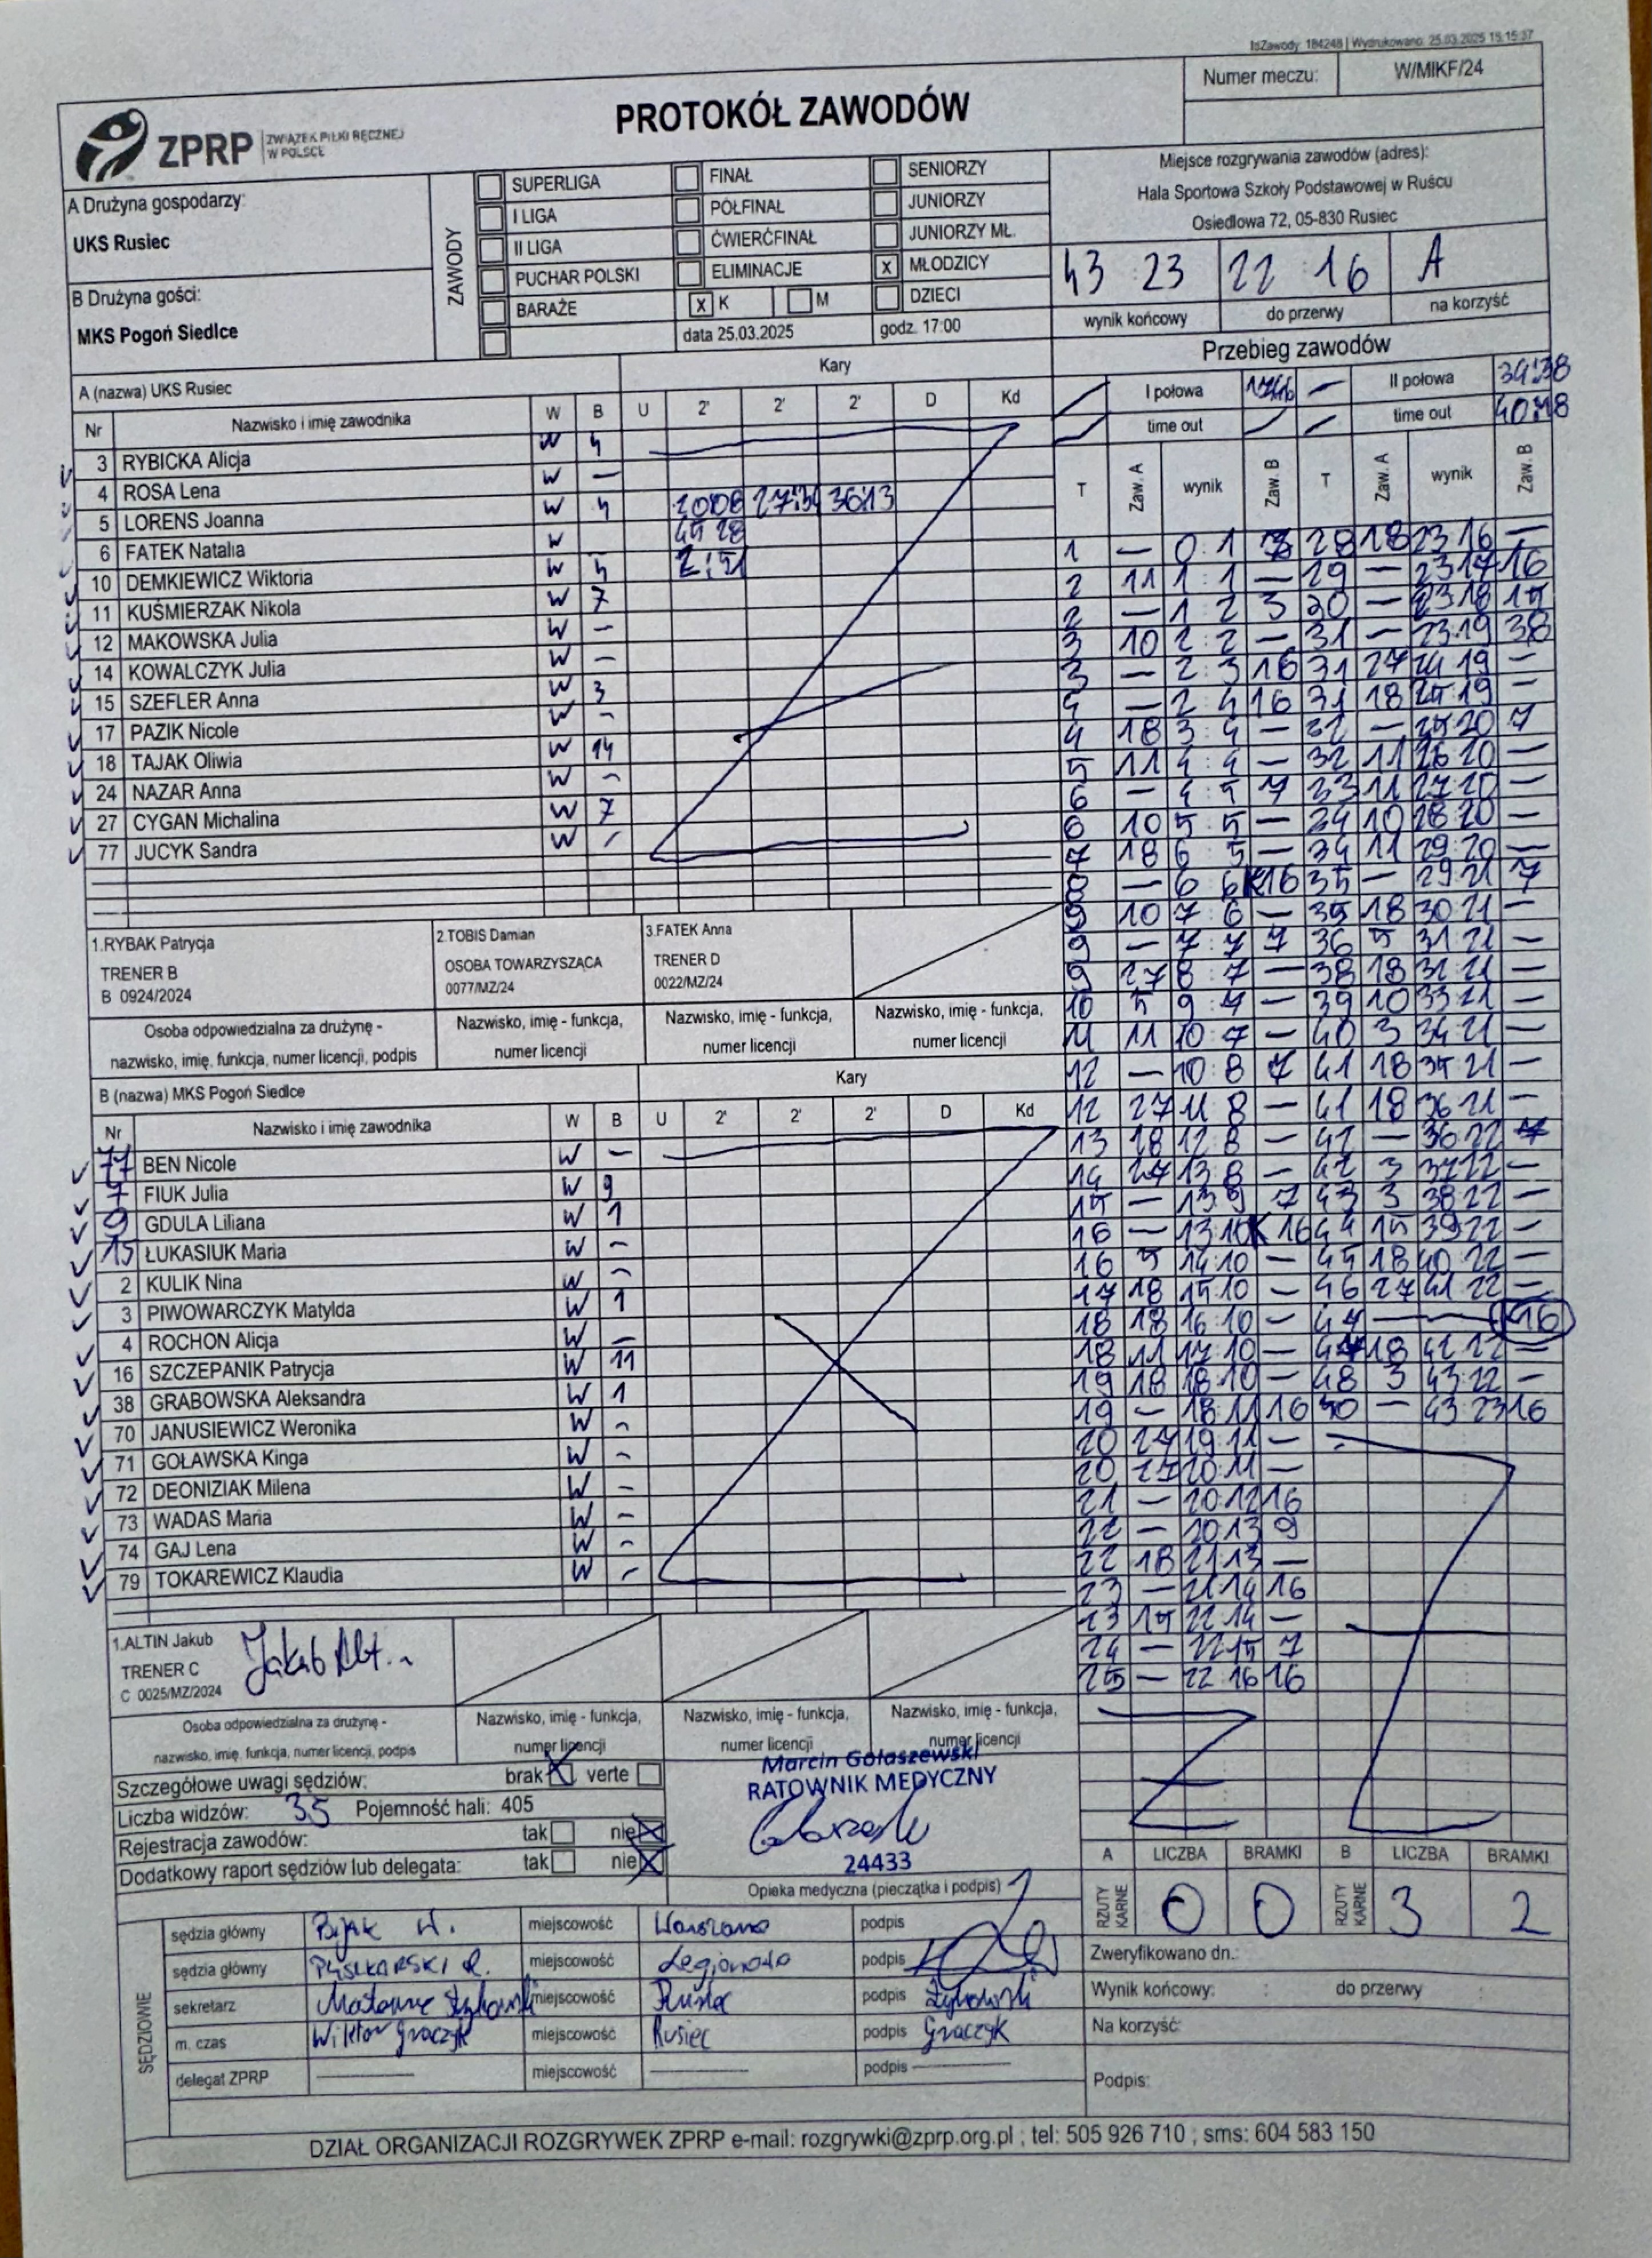 IdZawody: 184248 | Wydrukowano: 25.03.2025 15:15:37
Numer meczu: W/MIKF/24
PROTOKÓŁ ZAWODÓW
ZPRP ZWIĄZEK PIŁKI RĘCZNEJ W POLSCE
A Drużyna gospodarzy:
UKS Rusiec
B Drużyna gości:
MKS Pogoń Siedlce
ZAWODY
SUPERLIGA FINAŁ SENIORZY
I LIGA PÓŁFINAŁ JUNIORZY
II LIGA ĆWIERĆFINAŁ JUNIORZY MŁ.
PUCHAR POLSKI ELIMINACJE x MŁODZICY
BARAŻE x K M DZIECI
data 25.03.2025 godz. 17:00
Miejsce rozgrywania zawodów (adres):
Hala Sportowa Szkoły Podstawowej w Ruścu
Osiedlowa 72, 05-830 Rusiec
43 : 23 22 : 16 A
wynik końcowy do przerwy na korzyść
Przebieg zawodów
I połowa II połowa 34:38
time out time out 40:18
T Zaw. A wynik Zaw. B T Zaw. A wynik Zaw. B
A (nazwa) UKS Rusiec Kary
Nr Nazwisko i imię zawodnika W B U 2' 2' 2' D Kd
3 RYBICKA Alicja W 4
4 ROSA Lena W —
5 LORENS Joanna W 4 20:08 27:34 36:13
6 FATEK Natalia W 45 28
10 DEMKIEWICZ Wiktoria W 4 2:51
11 KUŚMIERZAK Nikola W 7
12 MAKOWSKA Julia W —
14 KOWALCZYK Julia W —
15 SZEFLER Anna W 3
17 PAZIK Nicole W —
18 TAJAK Oliwia W 14
24 NAZAR Anna W —
27 CYGAN Michalina W 7
77 JUCYK Sandra W —
1.RYBAK Patrycja
TRENER B
B 0924/2024
2.TOBIS Damian
OSOBA TOWARZYSZĄCA
0077/MZ/24
3.FATEK Anna
TRENER D
0022/MZ/24
Osoba odpowiedzialna za drużynę -
nazwisko, imię, funkcja, numer licencji, podpis
Nazwisko, imię - funkcja,
numer licencji
Nazwisko, imię - funkcja,
numer licencji
Nazwisko, imię - funkcja,
numer licencji
B (nazwa) MKS Pogoń Siedlce Kary
Nr Nazwisko i imię zawodnika W B U 2' 2' 2' D Kd
77 BEN Nicole W —
7 FIUK Julia W 9
9 GDULA Liliana W 1
15 ŁUKASIUK Maria W —
2 KULIK Nina W —
3 PIWOWARCZYK Matylda W 1
4 ROCHON Alicja W —
16 SZCZEPANIK Patrycja W 11
38 GRABOWSKA Aleksandra W 1
70 JANUSIEWICZ Weronika W —
71 GOŁAWSKA Kinga W —
72 DEONIZIAK Milena W —
73 WADAS Maria W —
74 GAJ Lena W —
79 TOKAREWICZ Klaudia W —
1.ALTIN Jakub
TRENER C
C 0025/MZ/2024
Osoba odpowiedzialna za drużynę -
nazwisko, imię, funkcja, numer licencji, podpis
Nazwisko, imię - funkcja,
numer licencji
Nazwisko, imię - funkcja,
numer licencji
Nazwisko, imię - funkcja,
numer licencji
1 — 0:1 28 18 23:16 —
2 11 1:1 — 29 — 23:17 16
2 — 1:2 3 30 — 23:18 15
3 10 2:2 — 31 — 23:19 38
3 — 2:3 16 31 27 24:19 —
4 — 2:4 16 31 18 25:19 —
4 18 3:4 — 32 — 25:20 7
5 11 4:4 — 32 11 26:20 —
6 — 4:5 7 33 11 27:20 —
6 10 5:5 — 34 10 28:20 —
7 18 6:5 — 34 11 29:20 —
8 — 6:6 K16 35 — 29:21 7
9 10 7:6 — 35 18 30:21 —
9 — 7:7 7 36 5 31:21 —
9 27 8:7 — 38 18 32:21 —
10 5 9:7 — 39 10 33:21 —
11 11 10:7 — 40 3 34:21 —
12 — 10:8 7 41 18 35:21 —
12 27 11:8 — 41 18 36:21 —
13 18 12:8 — 42 — 36:22 7
14 27 13:8 — 42 3 37:22 —
15 — 13:9 7 43 3 38:22 —
16 — 13:10 K16 44 15 39:22 —
16 5 14:10 — 45 18 40:22 —
17 18 15:10 — 46 27 41:22 —
18 18 16:10 — 47 — — K16
18 11 17:10 — 47 18 42:22 —
19 18 18:10 — 48 3 43:22 —
19 — 18:11 16 50 — 43:23 16
20 27 19:11 —
20 27 20:11 —
21 — 20:12 16
22 — 20:13 9
22 18 21:13 —
23 — 21:14 16
23 15 22:14 —
24 — 22:15 7
25 — 22:16 16
Szczegółowe uwagi sędziów: brak X verte
Liczba widzów: 35 Pojemność hali: 405
Rejestracja zawodów: tak nie X
Dodatkowy raport sędziów lub delegata: tak nie X
Marcin Gołaszewski
RATOWNIK MEDYCZNY
24433
Opieka medyczna (pieczątka i podpis)
A LICZBA BRAMKI B LICZBA BRAMKI
RZUTY KARNE 0 0 RZUTY KARNE 3 2
SĘDZIOWIE
sędzia główny Bijak W. miejscowość Warszawa podpis
sędzia główny miejscowość Legionowo podpis
sekretarz miejscowość Rusiec podpis
m. czas Wiktor Graczyk miejscowość Rusiec podpis Graczyk
delegat ZPRP — miejscowość — podpis —
Zweryfikowano dn.:
Wynik końcowy: : do przerwy :
Na korzyść:
Podpis:
DZIAŁ ORGANIZACJI ROZGRYWEK ZPRP e-mail: rozgrywki@zprp.org.pl ; tel: 505 926 710 ; sms: 604 583 150